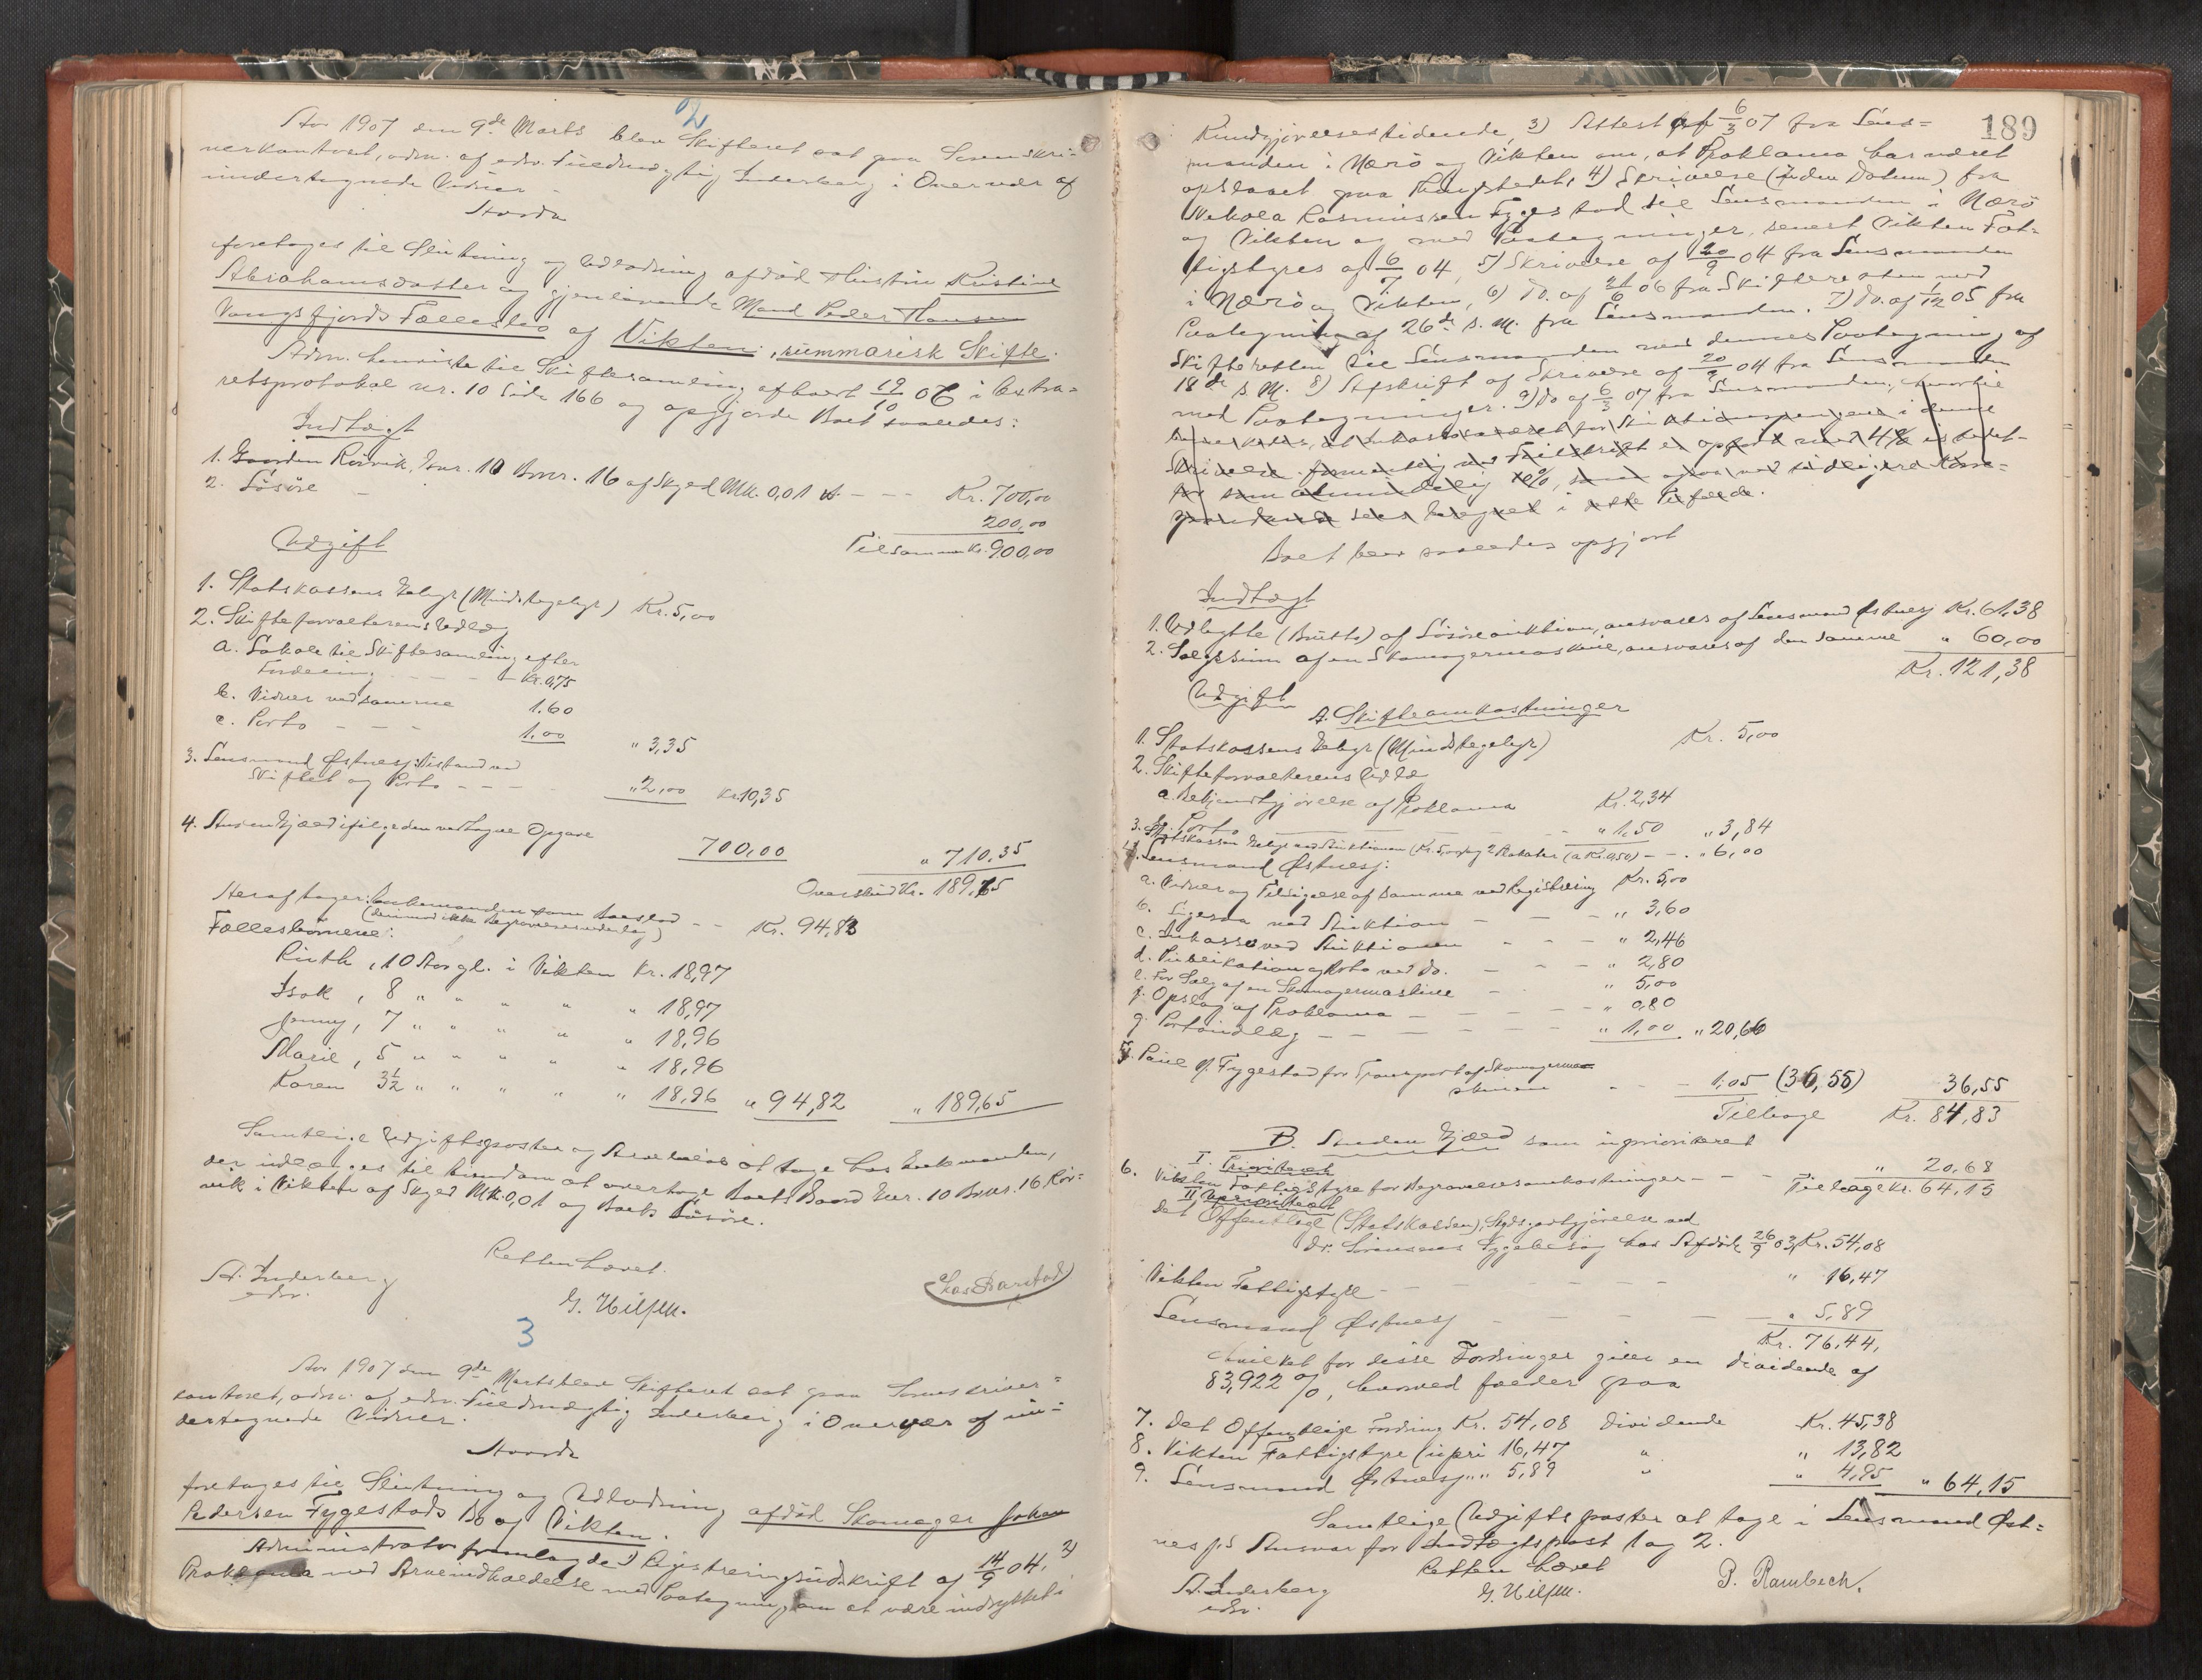 2
Aar 1907 den 9de Marts blev Skifteret sat paa Sorenskri-
verkontoret, adm. af edsv. Fuldmægtig Inderberg i Overvær af
undertegnede Vidner
Hvorda
foretages til Slutning og Udlodning afdød Hustru Kristine
Abrahamsdatter og gjenlevende Mand Peder Hansen
Vangsfjords Fællesbo af Vikten, summarisk Skifte.
Adm. henviste til Skiftesamling afholdt 19/10 06 i Extra-
retsprotokol nr. 10 Side 166 og opgjorde Boet saaledes:
Indtægt
1. Gaarden Rørvik, Gnr. 10 Bnr. 16 af Skyld Mk. 0,01 - - - Kr. 700,00
2. Løsøre - 200,00
Tilsammen Kr. 900,00
Udgift
1. Statskassens Gebyr (Mindstegebyr) Kr. 5,00
2. Skifteforvalterens Udlæg
a. Lokale til Skiftesamling efter
Fordeling - - - - Kr. 0,75
b. Vidner ved samme 1.60
c. Porto - - - 1,00 " 3,35
3. Lensmand Østnes: Bistand ved
Skiftet og Porto - - - " 2,00 Kr. 10,35
4. Anden Gjæld ifølge den vedtagne Opgave 700,00 " 710,35
Overskud Kr. 189,65
Heraf tager: Enkemanden som Boeslod - - Kr. 94,83
(derimod ikke Begravelsesudlæg)
Fællesbørnene:
Ruth, 10 Aar gl. i Vikten Kr. 18,97
Isak, 8 " " " " " 18,97
Jenny, 7 " " " " " 18,96
Marie, 5 " " " " " 18,96
Karen 3½ " " " " " 18,96 " 94,82 " 189,65
Samtlige Udgiftsposter og Arvelod at tage hos Enkemanden,
der udlægges til Eiendom at overtage Boets Gaard Gnr. 10 Bnr. 16 Rør-
vik i Vikten af Skyld Mk. 0,01 og Boets Løsøre.
Retten hævet.
A. Inderberg
edsv.
G. Nilsen.
3
Aar 1907 den 9de Marts blev Skifteret sat paa Sorenskriver-
kontoret, adm. af edsv. Fuldmægtig Inderberg i Overvær af un-
dertegnede Vidner.
Hvorda
foretages til Slutning og Udlodning afdød Skomager Johan
Pedersen Fygestads Bo af Vikten.
Administrator fremlagde 1) Registreringsudskrift af 14/9 04. 2)
Proklama med Arveindkaldelse med Paategning om at være indrykket i
189
Kundgjørelsestidende, 3) Attest af 6/3 07 fra Lens-
manden i Nærø og Vikten om, at Proklama har været
opslaaet paa Thingstedet, 4) Skrivelse (uden Datum) fra
Nikola Rasmussen Fygestad til Lensmanden i Nærø
og Vikten og med Paategninger, senest Vikten Fat-
tigstyres af 6/7 04, 5) Skrivelse af 20/9 04 fra Lensmanden
i Nærø og Vikten, 6) Do. af 21/6 06 fra Skifteretten med
Paategning af 26de s. M. fra Lensmanden. 7) Do. af 1/12 05 fra
Skifteretten til Lensmanden med dennes Paategning af
18de s. M. 8) Afskrift af Skrivelse af 20/9 04 fra Lensmanden
med Paategninger. 9) Do af 6/3 07 fra Lensmanden, hvortil
Boet blev saaledes opgjort
Indtægt
1. Udbytte (Brutto) af Løsøreauktion, ansvares af Lensmand Østnes Kr. 61,38
2. Salgssum af en Skomagermaskine, ansvares af den samme " 60,00
Kr. 121,38
Udgift
A. Skifteomkostninger
1. Statskassens Gebyr (Mindstegebyr) Kr. 5,00
2. Skifteforvalterens Udlæg
a. Bekjendtgjørelse af Proklama Kr. 2,34
b. Porto - - - - " 1.50 " 3,84
3. Statskassen Gebyr ved Auktionen (Kr. 5,00 og 2 Plakater (a Kr. 0,50) - - " 6,00
4. Lensmand Østnes:
a. Vidner og Tilsigelse af samme ved Registrering Kr. 5,00
b. Ligesaa ved Auktion - - - " 3,60
c. Inkasso ved Auktionen - - - " 2,46
d. Publikation og Porto ved do. - - - " 2,80
e. For Salg af en Skomagermaskine - " 5,00
f. Opslag af Proklama - - - - " 0,80
g. Portoudlæg - - - - - " 1,00 " 20,66
5. Paul P. Fygestad for Transport af Skomagerma-
skinen - - - 1,05 (36,55) 36,55
Tilbage Kr. 84,83
B. Anden Gjæld som uprioriteret
I Prioriteret
6. Vikten Fattigstyre for Begravelsesomkostninger - - - " 20,68
Tilbage Kr. 64,15
II Uprioriteret
Det Offentlige (Statskassen), Skydsgodtgjørelse ved
Dr. Sørensens Sygebesøg hos Afdøde 26/9 03, Kr. 54,08
Vikten Fattigstyre - - - - - - " 16,47
Lensmand Østnes - - - - - " 5,89
Kr. 76,44,
hvilket for disse Fordringer giver en Dividende af
83,922 %, hvorved falder paa
7. Det Offentlige Fordring Kr. 54,08 Dividende Kr. 45,38
8. Vikten Fattigstyre (upri 16,47 " " 13,82
9. Lensmand Østnes " " 5,89 " " 4,95 " 64,15
Samtlige Udgiftsposter at tage i Lensmand Øst-
nes's Ansvar for Indtægtspost 1 og 2.
Retten hævet
A. Inderberg
edsv.
G. Nilsen.
P. Rambech.